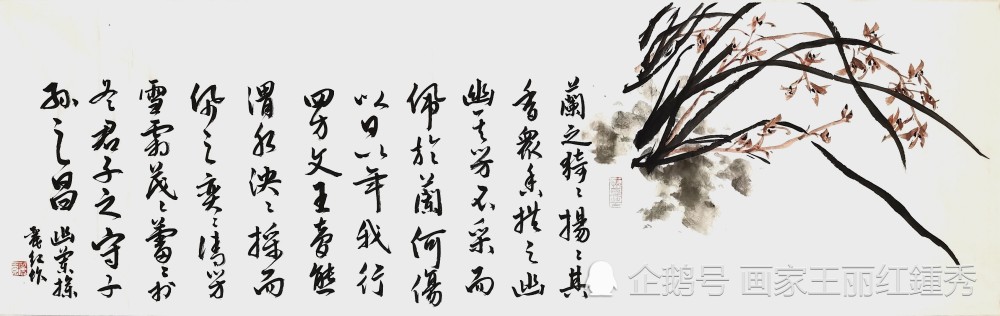 蘭之猗〻揚〻其
香眾香拱之幽
幽其芳不采而
佩於蘭何傷
以日以年我行
四方文王夢熊
渭水泱〻採而
佩之奕〻清芳
雪霜茂〻蕾〻於
冬君子之守子
孫之昌 幽蘭操
麗紅作
企鹅号 画家王丽红鍾秀